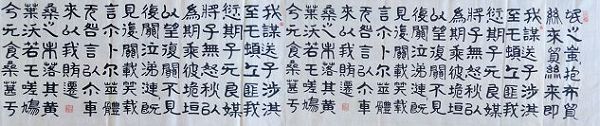 氓之蚩抱布貿
絲來貿絲來即
我謀送子涉淇
至于頓丘匪我
愆期子无良媒
將子無怒秋以
為期乘彼垝垣
以望復關不見
復關泣涕漣既
見復關載笑載
言尒卜尔筮體
无咎言以尒車
來以我賄遷
桑之未落其黃
葉沃若于嗟鳩
今无食桑葚于
我謀送子涉淇
至于頓丘匪我
愆期子无良媒
將子無怒秋以
為期乘彼垝垣
以望復關不見
復關泣涕漣既
見復關載笑載
言尒卜尔筮體
无咎言以尒車
來以我賄遷
桑之未落其黃
葉沃若于嗟鳩
今无食桑葚于